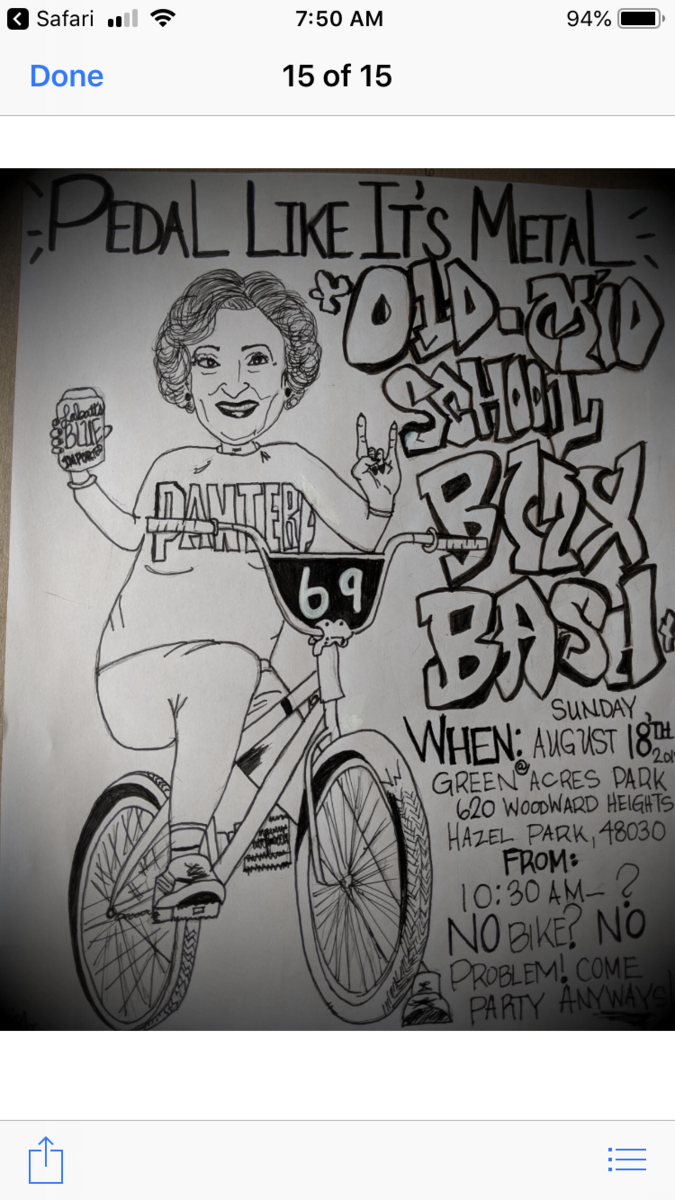 Safari
7:50 AM
94%
Done
15 of 15
PEDAL LIKE IT'S METAL
OLD-MID
SCHOOL
BMX
BASH
Labatt's
BLUE
IMPORTED
PANTERA
69
SUNDAY,
WHEN: AUGUST 18TH
@
GREEN ACRES PARK
620 WOODWARD HEIGHTS
HAZEL PARK, 48030
FROM:
10:30 AM- ?
NO BIKE? NO
PROBLEM! COME
PARTY ANYWAYS!